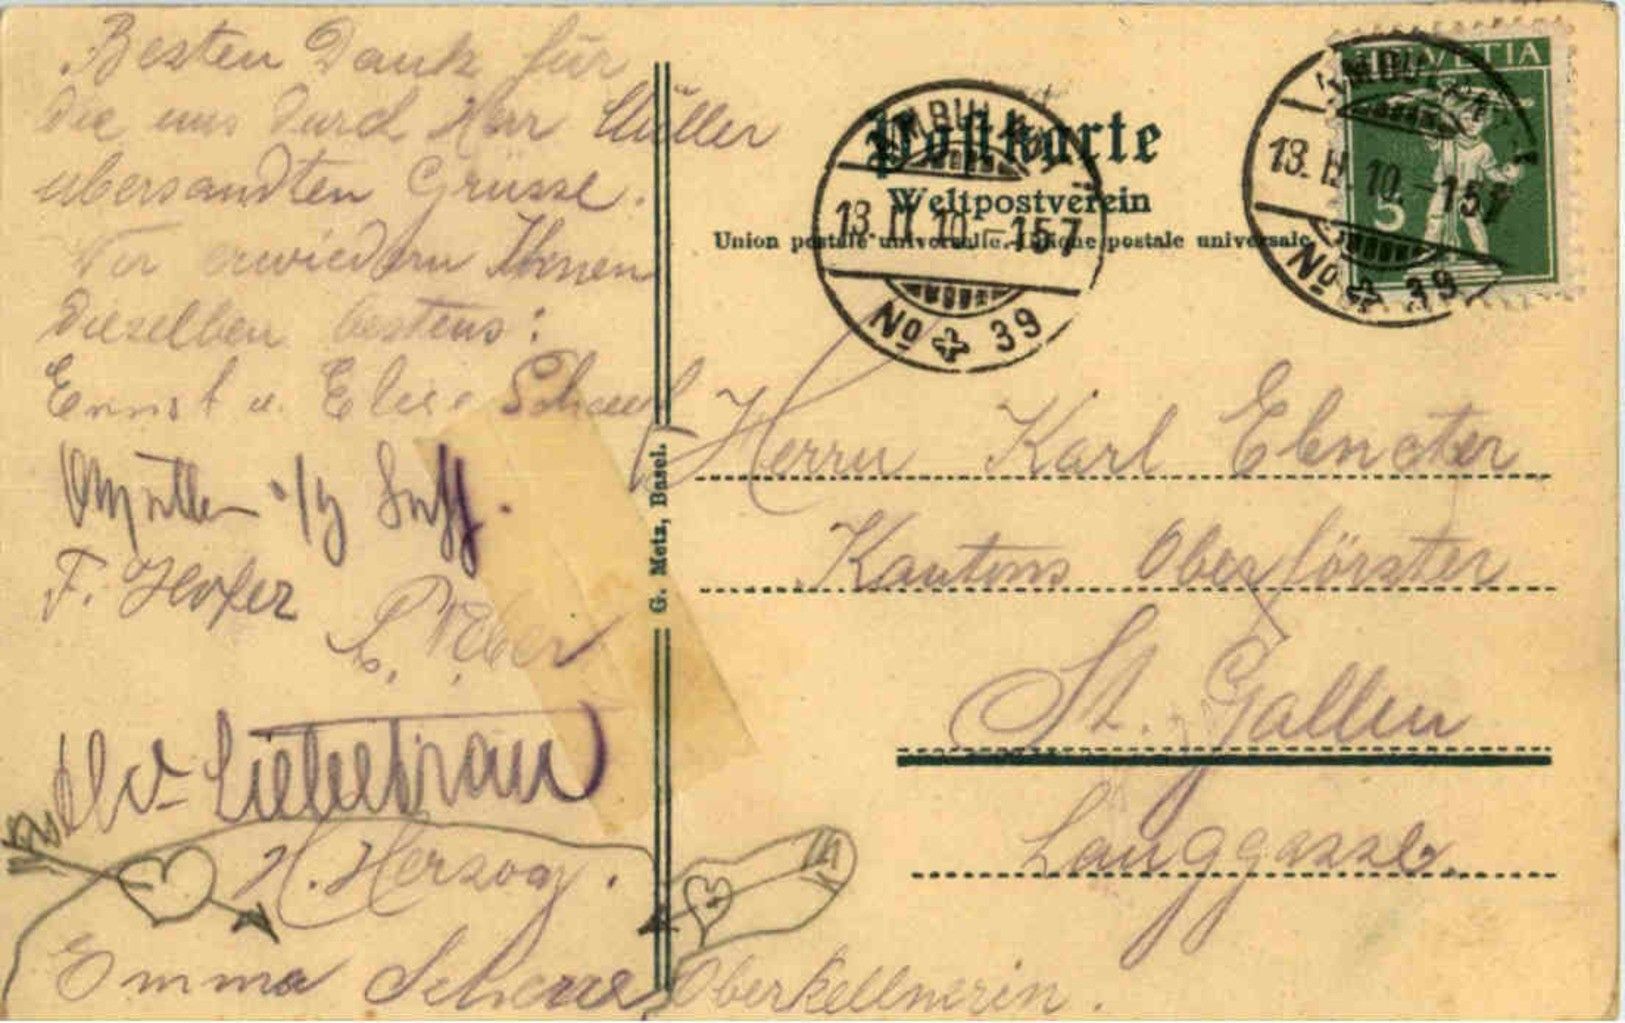 Besten Dank für
die uns durch Herr Müller
übersandten Grüsse.
Wir erwiedern Ihnen
dieselben bestens:
Ernst u. Elise
F. Hofer
Weber
Liebetrau
H. Herzog.
Emma Scherrer, Oberkellnerin.
G. Metz, Basel.
Postkarte
Weltpostverein
Union postale universelle. Unione postale universale.
AMBULANT
13. II. 10. - 157
No 39
HELVETIA
5
AMBULANT
13. II. 10. - 157
No 39
Herrn Karl
Kantons Oberförster
St. Gallen
Langgasse.